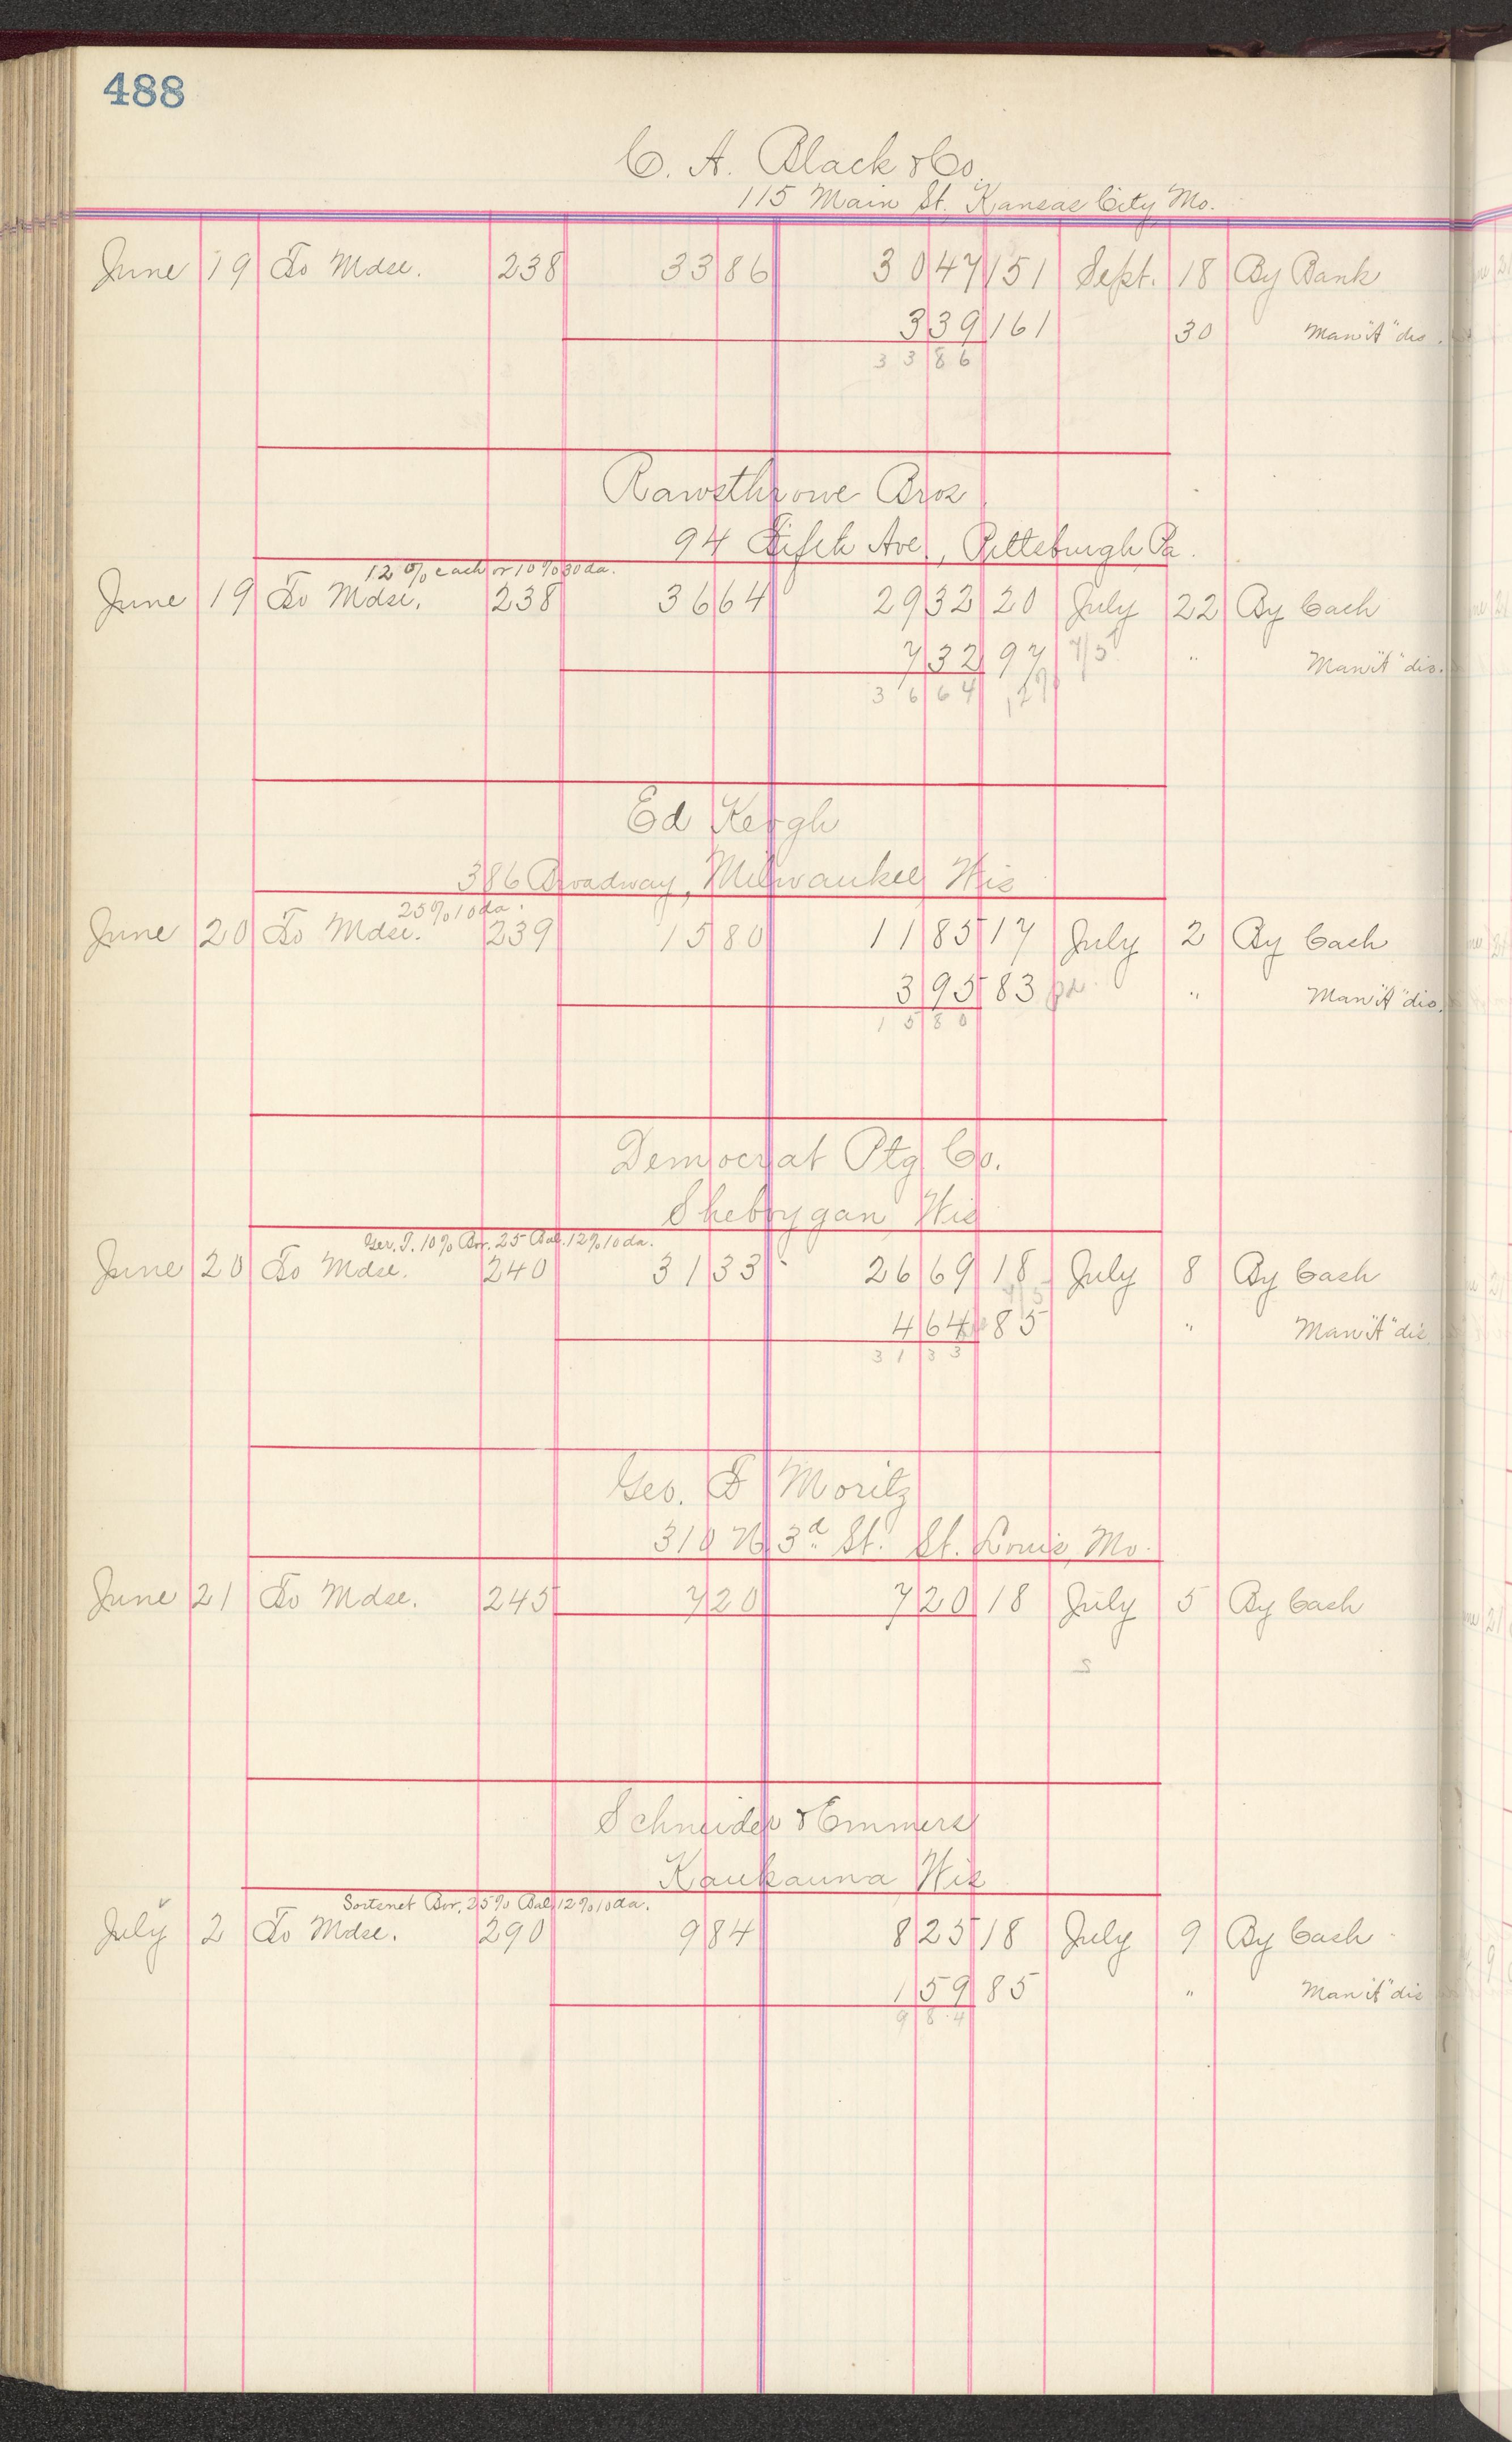 488
C. A. Black & Co.
115 Main St. Kansas City Mo.
June 19 To Mdse. 238 33 86 30 47 151 Sept. 18 By Bank
3 39 161 30 Man'f'd dis.
33 86
Rawsthrowe Bros
94 Fifth Ave, Pittsburgh, Pa.
12% cash or 10% 30 da.
June 19 To Mdse. 238 36 64 29 32 20 July 22 By Cash
7 32 97 7/5 " dis.
36 64
Ed Keogh
386 Broadway, Milwaukee Wis
25% 10 da.
June 20 To Mdse. 239 15 80 11 85 17 July 2 By Cash
3 95 83 " dis.
15 80
Democrat Ptg Co.
Sheboygan Wis
Ger. T. 10% Bor. 25 Bal. 12% 10 da.
June 20 To Mdse. 240 31 33 26 69 18 July 8 By Cash
4 64 85 " dis.
31 33
Geo. F Moritz
310 N 3d St. St. Louis, Mo.
June 21 To Mdse. 245 7 20 7 20 18 July 5 By Cash
Schneider & Emmers
Kaukauna Wis
Bor. 25% Bal. 12% 10 da.
July 2 To Mdse. 290 9 84 8 25 18 July 9 By Cash
1 59 85 " dis
9 84